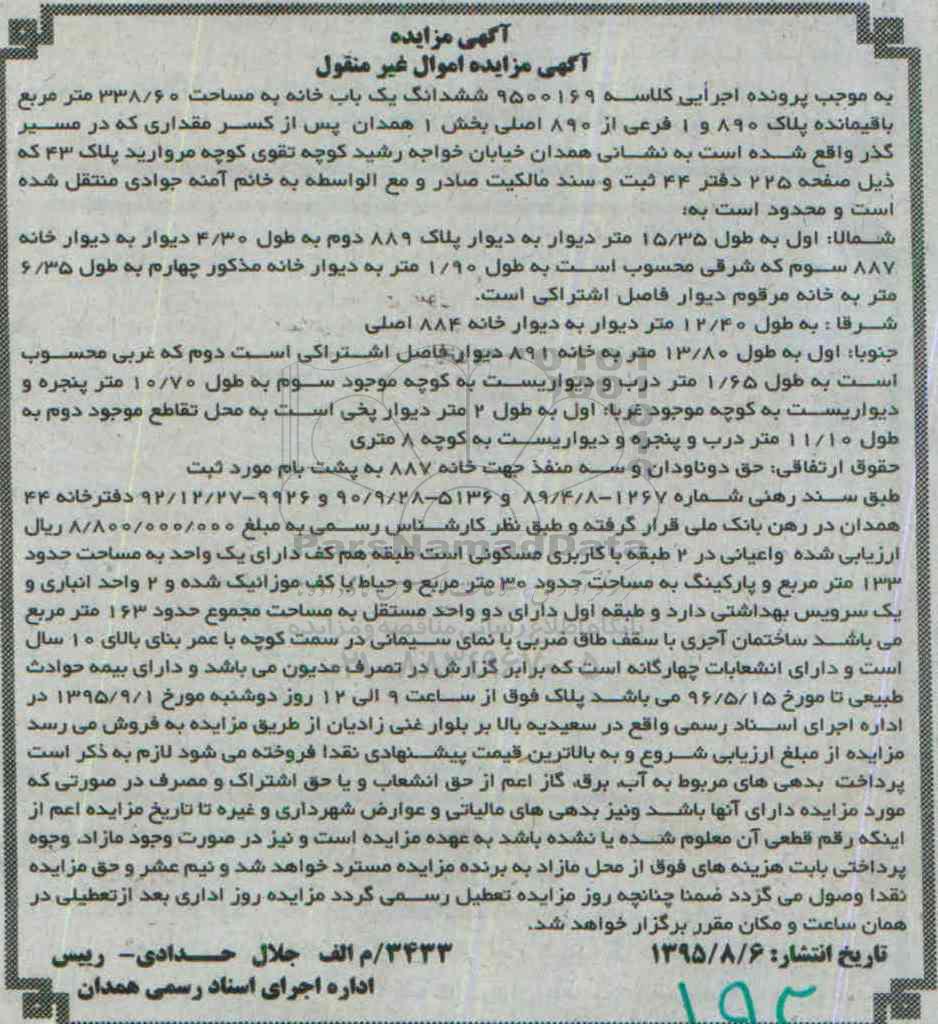 آگهی مزایده
آگهی مزایده اموال غیر منقول
به موجب پرونده اجرایی کلاسه ۹۵۰۰۱۶۹ ششدانگ یک باب خانه به مساحت ۳۳۸/۶۰ متر مربع
باقیمانده پلاک ۸۹۰ و ۱ فرعی از ۸۹۰ اصلی بخش ۱ همدان پس از کسر مقداری که در مسیر
گذر واقع شده است به نشانی همدان خیابان خواجه رشید کوچه تقوی کوچه مروارید پلاک ۴۳ که
ذیل صفحه ۲۲۵ دفتر ۴۴ ثبت و سند مالکیت صادر و مع الواسطه به خانم آمنه جوادی منتقل شده
است و محدود است به:
شمالا: اول به طول ۱۵/۳۵ متر دیوار به دیوار پلاک ۸۸۹ دوم به طول ۴/۳۰ دیوار به دیوار خانه
۸۸۷ سوم که شرقی محسوب است به طول ۱/۹۰ متر به دیوار خانه مذکور چهارم به طول ۶/۳۵
متر به خانه مرقوم دیوار فاصل اشتراکی است.
شرقا : به طول ۱۲/۴۰ متر دیوار به دیوار خانه ۸۸۴ اصلی
جنوبا: اول به طول ۱۳/۸۰ متر به خانه ۸۹۱ دیوار فاصل اشتراکی است دوم که غربی محسوب
است به طول ۱/۶۵ متر درب و دیواریست به کوچه موجود سوم به طول ۱۰/۷۰ متر پنجره و
دیواریست به کوچه موجود غربا: اول به طول ۲ متر دیوار پخی است به محل تقاطع موجود دوم به
طول ۱۱/۱۰ متر درب و پنجره و دیواریست به کوچه ۸ متری
حقوق ارتفاقی: حق دوناودان و سه منفذ جهت خانه ۸۸۷ به پشت بام مورد ثبت
طبق سند رهنی شماره ۱۲۶۷-۸۹/۴/۸ و ۵۱۳۶-۹۰/۹/۲۸ و ۹۹۲۶-۹۲/۱۲/۲۷ دفترخانه ۴۴
همدان در رهن بانک ملی قرار گرفته و طبق نظر کارشناس رسمی به مبلغ ۸/۸۰۰/۰۰۰/۰۰۰ ریال
ارزیابی شده واعیانی در ۲ طبقه با کاربری مسکونی است طبقه هم کف دارای یک واحد به مساحت حدود
۱۳۳ متر مربع و پارکینگ به مساحت حدود ۳۰ متر مربع و حیاط با کف موزائیک شده و ۲ واحد انباری و
یک سرویس بهداشتی دارد و طبقه اول دارای دو واحد مستقل به مساحت مجموع حدود ۱۶۳ متر مربع
می باشد ساختمان آجری با سقف طاق ضربی با نمای سیمانی در سمت کوچه با عمر بنای بالای ۱۰ سال
است و دارای انشعابات چهارگانه است که برابر گزارش در تصرف مدیون می باشد و دارای بیمه حوادث
طبیعی تا مورخ ۹۶/۵/۱۵ می باشد پلاک فوق از ساعت ۹ الی ۱۲ روز دوشنبه مورخ ۱۳۹۵/۹/۱ در
اداره اجرای اسناد رسمی واقع در سعیدیه بالا بر بلوار غنی زادیان از طریق مزایده به فروش می رسد
مزایده از مبلغ ارزیابی شروع و به بالاترین قیمت پیشنهادی نقدا فروخته می شود لازم به ذکر است
پرداخت بدهی های مربوط به آب، برق، گاز اعم از حق انشعاب و یا حق اشتراک و مصرف در صورتی که
مورد مزایده دارای آنها باشد ونیز بدهی های مالیاتی و عوارض شهرداری و غیره تا تاریخ مزایده اعم از
اینکه رقم قطعی آن معلوم شده یا نشده باشد به عهده مزایده است و نیز در صورت وجود مازاد، وجوه
پرداختی بابت هزینه های فوق از محل مازاد به برنده مزایده مسترد خواهد شد و نیم عشر و حق مزایده
نقدا وصول می گردد ضمنا چنانچه روز مزایده تعطیل رسمی گردد مزایده روز اداری بعد ازتعطیلی در
همان ساعت و مکان مقرر برگزار خواهد شد.
تاریخ انتشار: ۱۳۹۵/۸/۶
۳۴۳۳/م الف جلال حدادی- رییس
اداره اجرای اسناد رسمی همدان
ParsNamadData